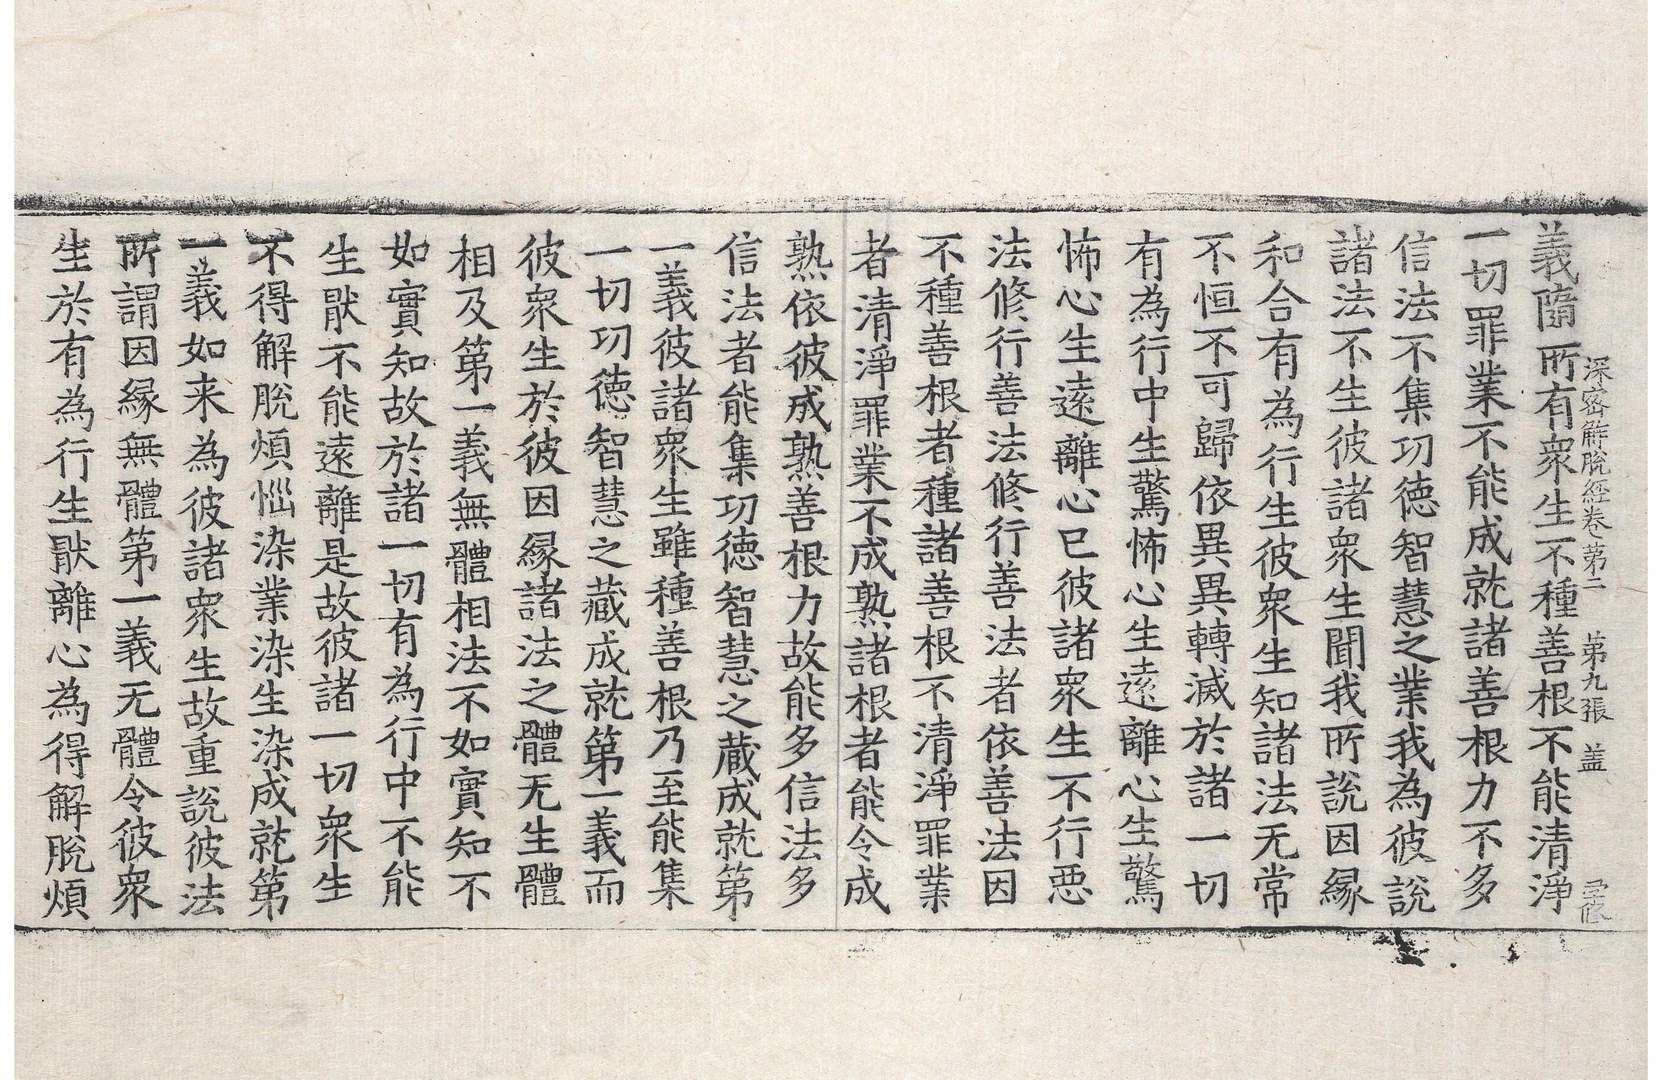 深密解脫經卷第二　第九張　盖
義隨所有衆生不種善根不能清淨
一切罪業不能成就諸善根力不多
信法不集功德智慧之業我為彼說
諸法不生彼諸衆生聞我所說因縁
和合有為行生彼衆生知諸法无常
不恒不可歸依異異轉滅於諸一切
有為行中生驚怖心生遠離心生驚
怖心生遠離心已彼諸衆生不行惡
法修行善法修行善法者依善法因
不種善根者種諸善根不清淨罪業
者清淨罪業不成熟諸根者能令成
熟依彼成熟善根力故能多信法多
信法者能集功德智慧之藏成就第
一義彼諸衆生雖種善根乃至能集
一切功德智慧之藏成就第一義而
彼衆生於彼因縁諸法之體无生體
相及第一義無體相法不如實知不
如實知故於諸一切有為行中不能
生猒不能遠離是故彼諸一切衆生
不得解脫煩惱染業染生染成就第
一義如来為彼諸衆生故重說彼法
所謂因縁無體第一義无體令彼衆
生於有為行生猒離心為得解脫煩